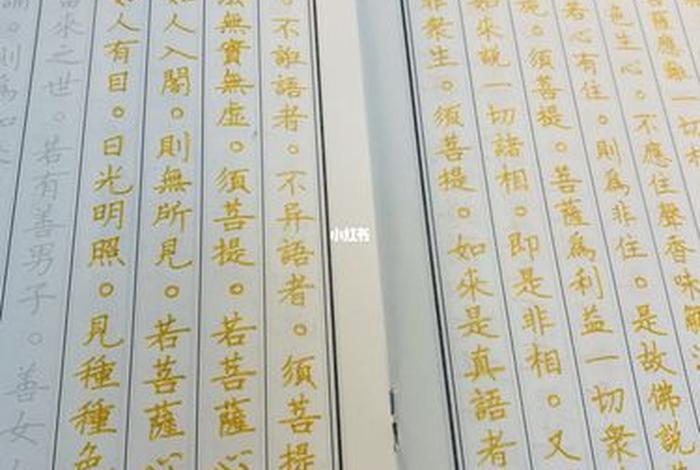 菩薩應離一切相
生心。不應住聲香味觸
若心有住。則為非住。是故佛說
須菩提。菩薩為利益一切衆
如來說一切諸相。即是非相。又
非衆生。須菩提。如來是真語者
不誑語者。不异語者。須菩提
法無實無虛。須菩提。若菩薩心
人入闇。則無所見。若菩薩心
人有目。日光明照。見種種色
當來之世。若有善男子。善女
誦。則為如來
小红书